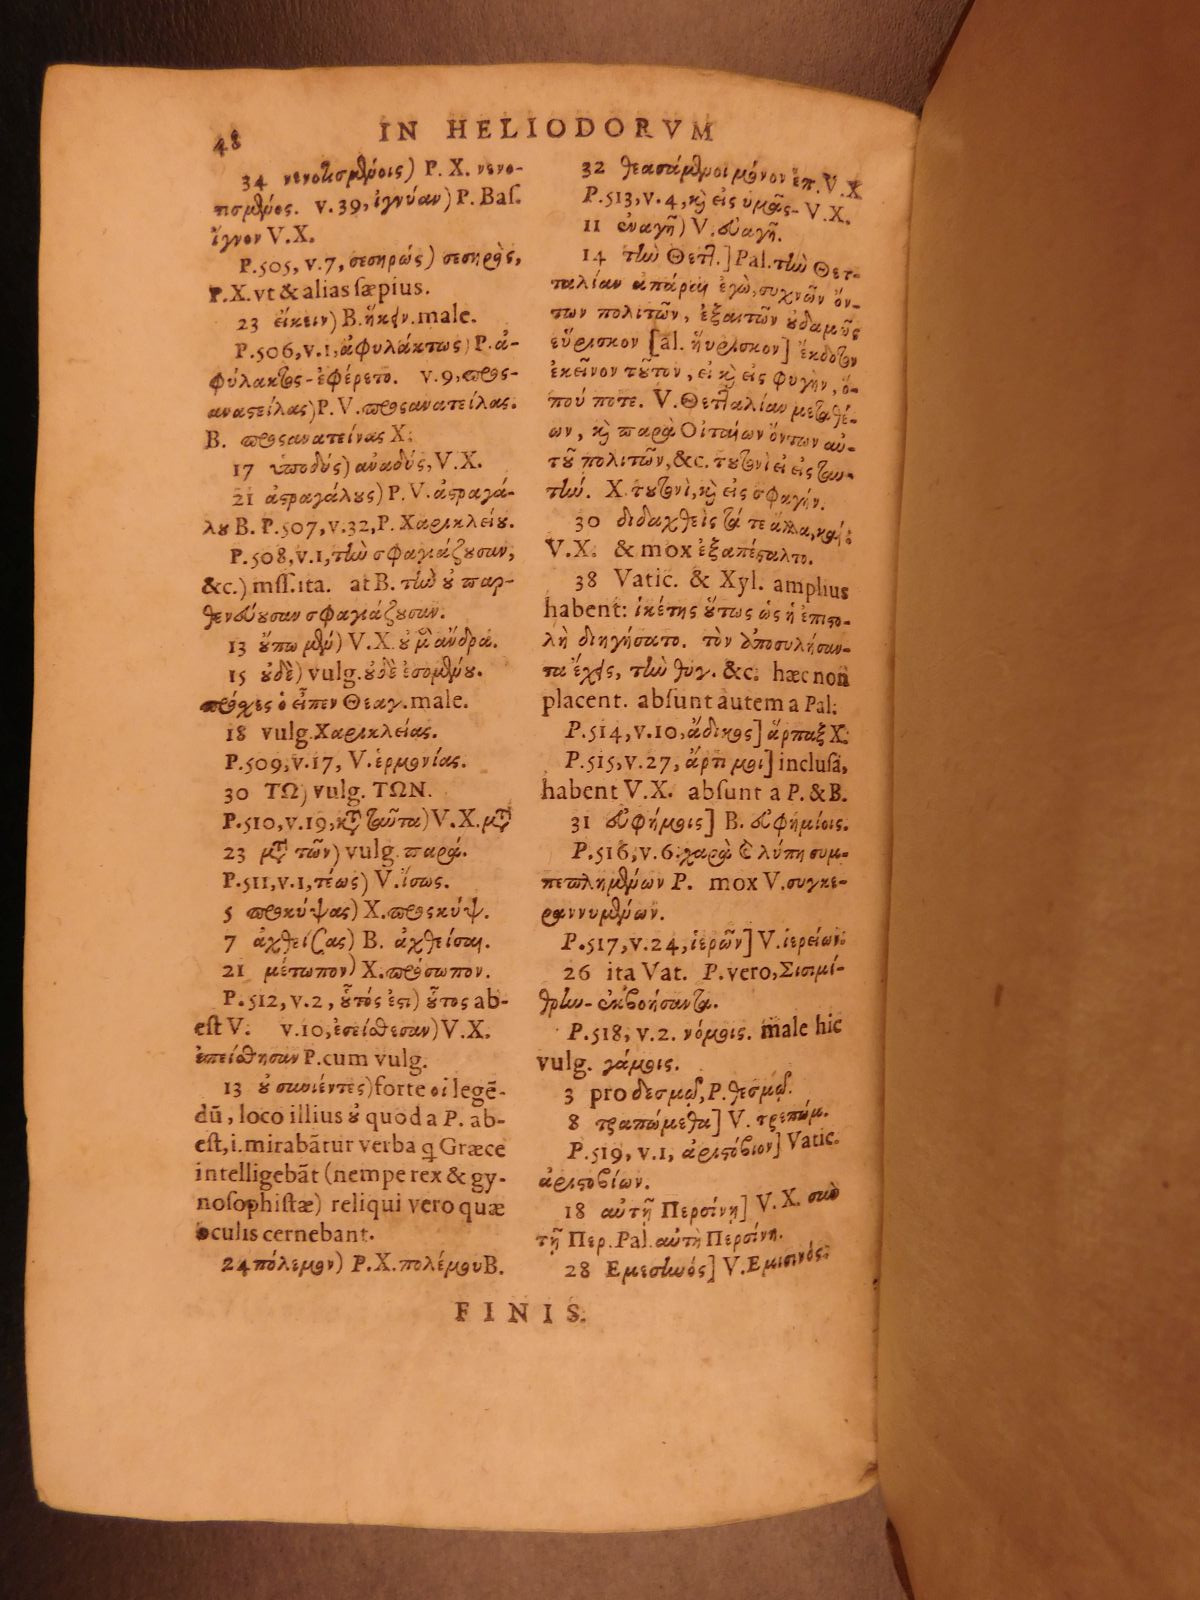 48 IN HELIODORVM
34 νενοτισμένοις) P. X. νενο-
τισμένος. v. 39, ἰγνύαν) P. Baſ.
ἴγνον V. X.
P. 505, v. 7, σεσηρώς) σεσηρὸς,
P. X. vt & alias sæpius.
23 εἴκειν) B. ἥκειν. male.
P. 506, v. 1, ἀφυλάκτως) P. ἀ-
φύλακτος - ἐφέρετο. v. 9, προς-
ανατείλας) P. V. προςανατείλας.
B. προςανατείνας X.
17 ὑποδύς) ἀναδύς, V. X.
21 ἀστραγάλους) P. V. ἀστραγά-
λου B. P. 507, v. 32, P. Χαρικλείου.
P. 508, v. 1, τὴν σφαγιάζουσαν,
&c.) mſſ. ita. at B. τὴν οὐ παρ-
θενεύουσαν σφαγιάζουσαν.
13 οὔπω μὲν) V. X. οὐ μὲν ἄνδρα.
15 οὐδὲ) vulg. οὐδὲ ἐσομένου.
πρόσχες ὁ εἶπεν Θεαγ. male.
18 vulg. Χαρικλείας.
P. 509, v. 17, V. ἑρμονίας.
30 ΤΩ) vulg. ΤΩΝ.
P. 510, v. 19, κατὰ ταῦτα) V. X. μετὰ
23 μετὰ τῶν) vulg. παρά.
P. 511, v. 1, τέως) V. ἴσως.
5 προκύψας) X. προςκύψ.
7 ἀχθείσας) B. ἀχθείσαι.
21 μέτωπον) X. πρόσωπον.
P. 512, v. 2, οὗτός ἐστι) οὗτος ab-
eſt V. v. 10, ἐσείσθεσαν) V. X.
ἐπείσθησαν P. cum vulg.
13 οὐ συνιέντες) forte οἱ legẽ-
dũ, loco illius οὐ quod a P. ab-
eſt, i. mirabãtur verba q̃ Græce
intelligebãt (nempe rex & gy-
noſophiſtæ) reliqui vero quæ
oculis cernebant.
24 πόλεμον) P. X. πολέμου B.
32 θεασάμενοι μόνον ἔπ. V. X
P. 513, v. 4, καὶ εἰς ὑμᾶς - V. X.
11 ἐναγῆ) V. εὐαγῆ.
14 τὴν Θετλ.] Pal. τὴν Θετ-
ταλίαν ἀπάρας ἐγὼ, συχνῶν ὄν-
των πολιτῶν, ἐξαιτῶν οὐδαμῶς
εὕρισκον [al. ηὕρισκον] ἔκδοτον
ἐκεῖνον τοῦτον, εἰ καὶ εἰς φυγὴν, ὅ-
που ποτε. V. Θετταλίαν μεταθέ-
ων, καὶ παρὰ Οἰταίων ὄντων αὐ-
τοῦ πολιτῶν, &c. τουτονὶ εἰ εἰς ταυ-
τὴν. X. τουτονὶ, καὶ εἰς σφαγήν.
30 διδαχθεὶς τά τε ἄλλα, καὶ:
V. X. & mox ἐξαπέσταλτο.
38 Vatic. & Xyl. amplius
habent: ἱκέτης οὕτως ὡς ἡ ἐπιστο-
λὴ διηγήσατο. τὸν ἀποσυλήσαν-
τα ἔχεις, τὴν θυγ. &c. hæc non
placent. abſunt autem a Pal.
P. 514, v. 10, ἄδικος] ἅρπαξ X.
P. 515, v. 27, ἄρτι μοι] incluſa,
habent V. X. abſunt a P. & B.
31 εὐφήμοις] B. εὐφημίοις.
P. 516, v. 6. χαρᾷ & λύπῃ συμ-
πεπλημένων P. mox V. συγκε-
ραννυμένων.
P. 517, v. 24, ἱερῶν] V. ἱερείων.
26 ita Vat. P. vero, Σισιμί-
θρην - ἐκβοήσαντα.
P. 518, v. 2. νόμοις. male hic
vulg. γάμοις.
3 pro δεσμῷ, P. θεσμῷ.
8 τραπώμεθα] V. τρεπώμ.
P. 519, v. 1, ἀριστόβιον] Vatic.
ἀριστοβίων.
18 αὐτῇ Περσίνῃ] V. X. σὺν
τῇ Περ. Pal. αὐτὴ Περσίνη.
28 Εμεσηνός] V. Εμισινός.
FINIS.